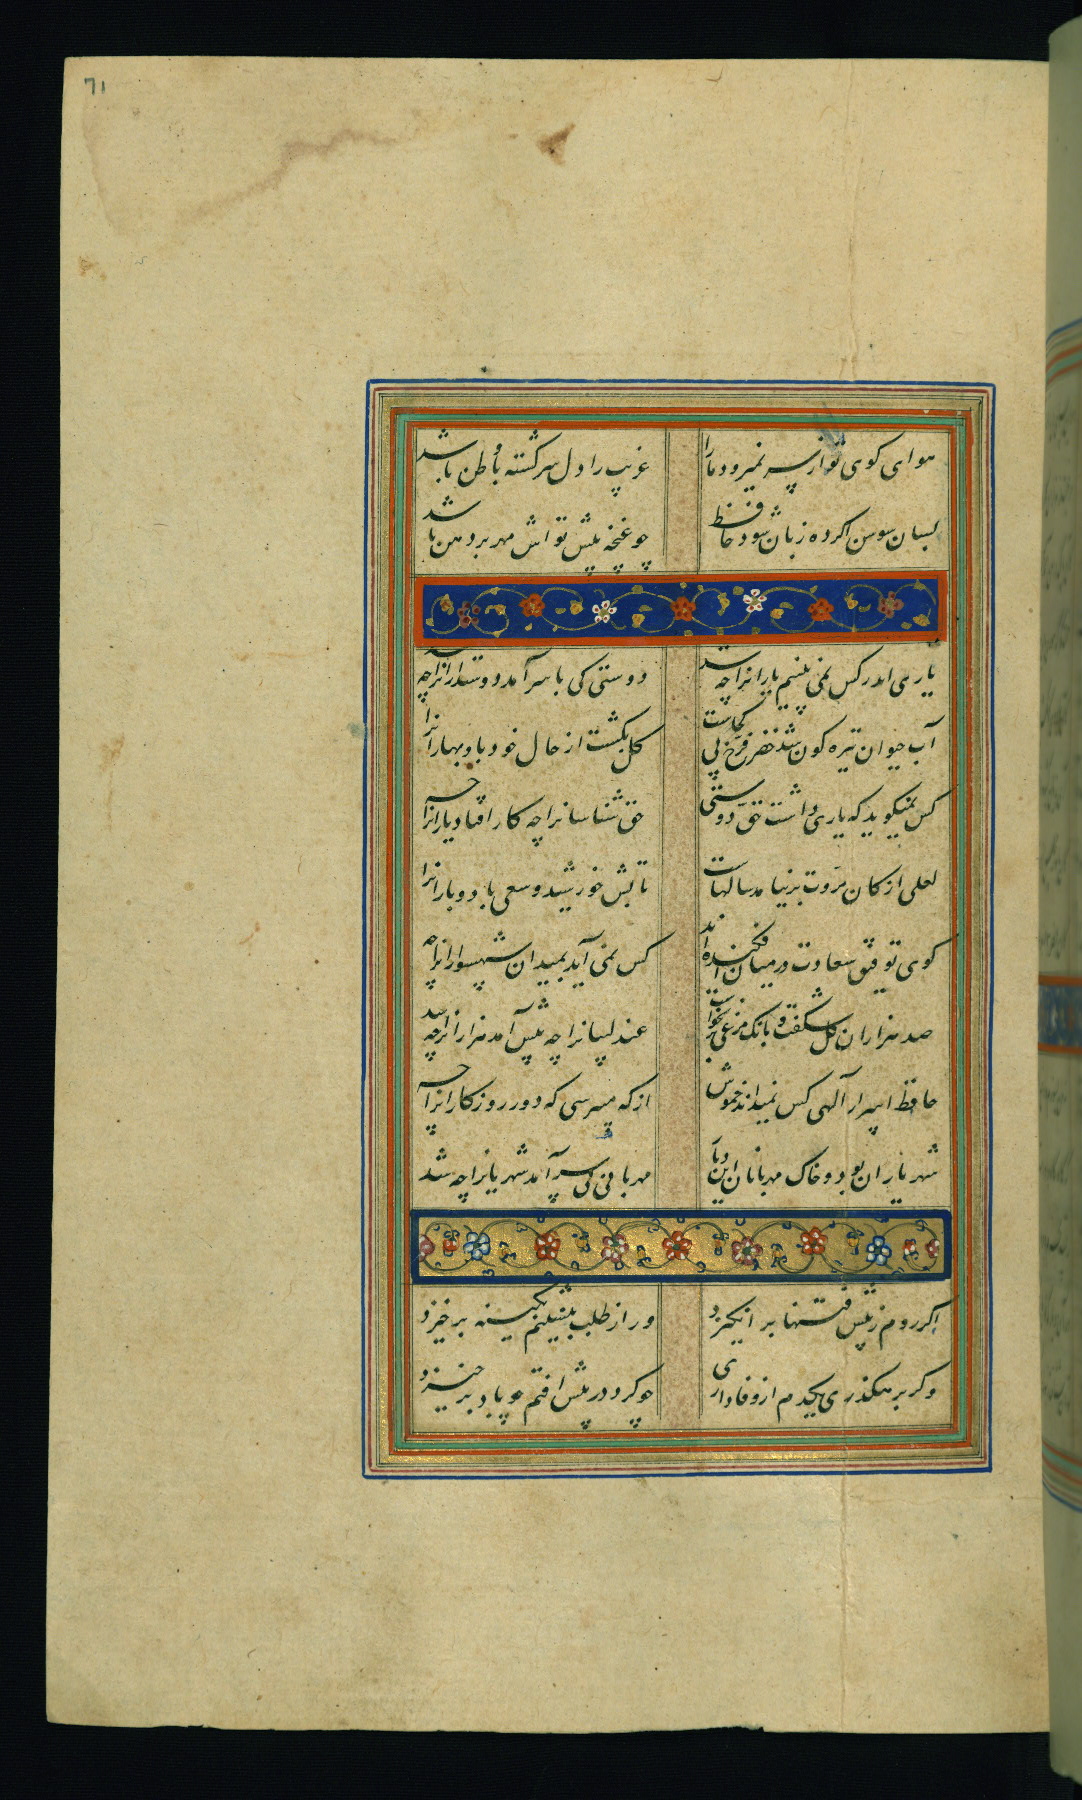 71
هوای کوی تو از سر نمیرود ما را غریب را دل سرگشته با وطن باشد
بسان سوسن اگر ده زبان شود حافظ چو غنچه پیش تواش مهر بر دهن باشد
یاری اندر کس نمی بینیم یارانرا چه شد دوستی کی با سر آمد دوستدارانرا چه
آب حیوان تیره کون شد خضر فرخ پی کجاست کل بگشت از حال خود باد بهارانرا
کس نمیکوید که یاری داشت حق دوستی حق شناسانرا چه کار افتاد یارانرا چه
لعلی از کان مروت برنیامد سالهاست تابش خورشید و سعی باد و بارانرا
کوی توفیق سعادت در میان افکنده اند کس نمی آید بمیدان شهسوارانرا چه
صد هزاران کل شکفت و بانک مرغی برنخواست عندلیبانرا چه پیش آمد هزارانرا چه شد
حافظ اسرار آلهی کس نمیداند خموش از که میپرسی که دور روزکارانرا چه
شهر یاران بود و خاک مهربانان این دیار مهربانی کی سر آمد شهریارانرا چه شد
اکر روم ز پیش فتنها برانکیزد ور از طلب بنشینم بکینه برخیزد
وکر برهکذری یکدم از وفاداری چو کرد در پیش افتم چو باد برخیزد